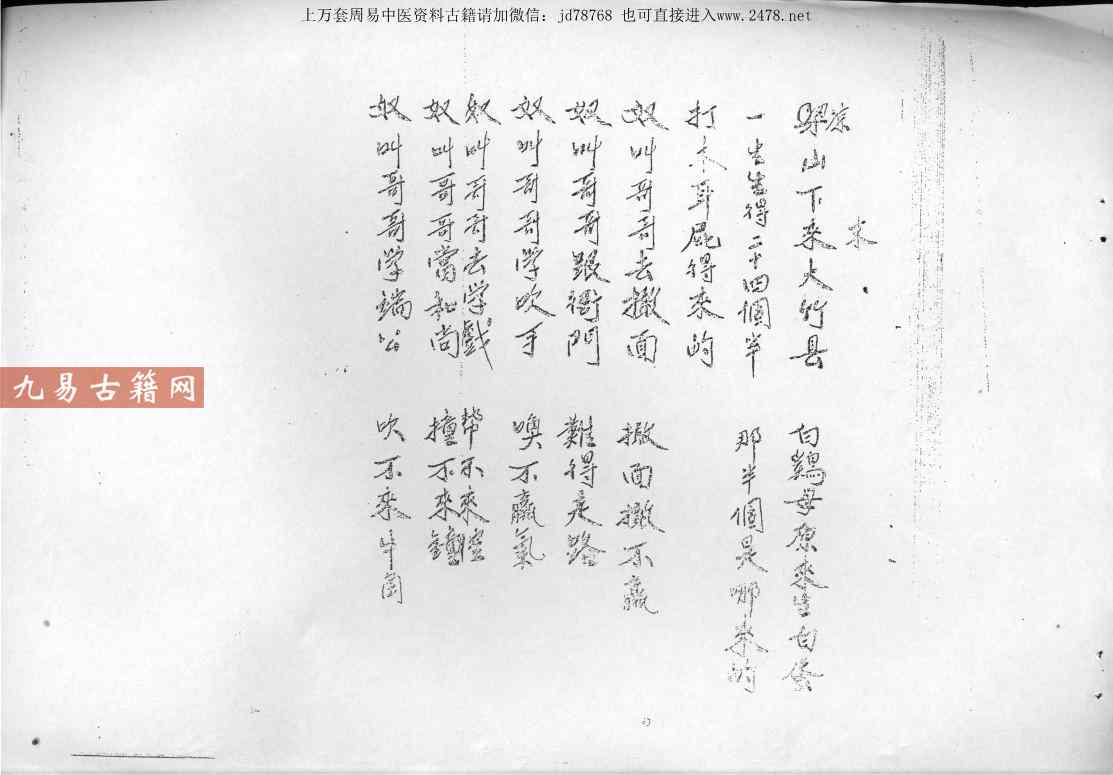 上万套周易中医资料古籍请加微信：jd78768 也可直接进入www.2478.net
凉
梁山下来大竹县 白鷄母原來生白蛋
一生生得二十四個半 那半個是哪來的
打木耳屁得來的
奴叫哥哥去撒面 撒面撒不贏
奴叫哥哥跟衙門 難得走路
奴叫哥哥学吹手 噢不贏氣
奴叫哥哥去学戲 帮不來
奴叫哥哥當和尚 撞不來鐘
奴叫哥哥学端公 吹不來牛角
九易古籍网